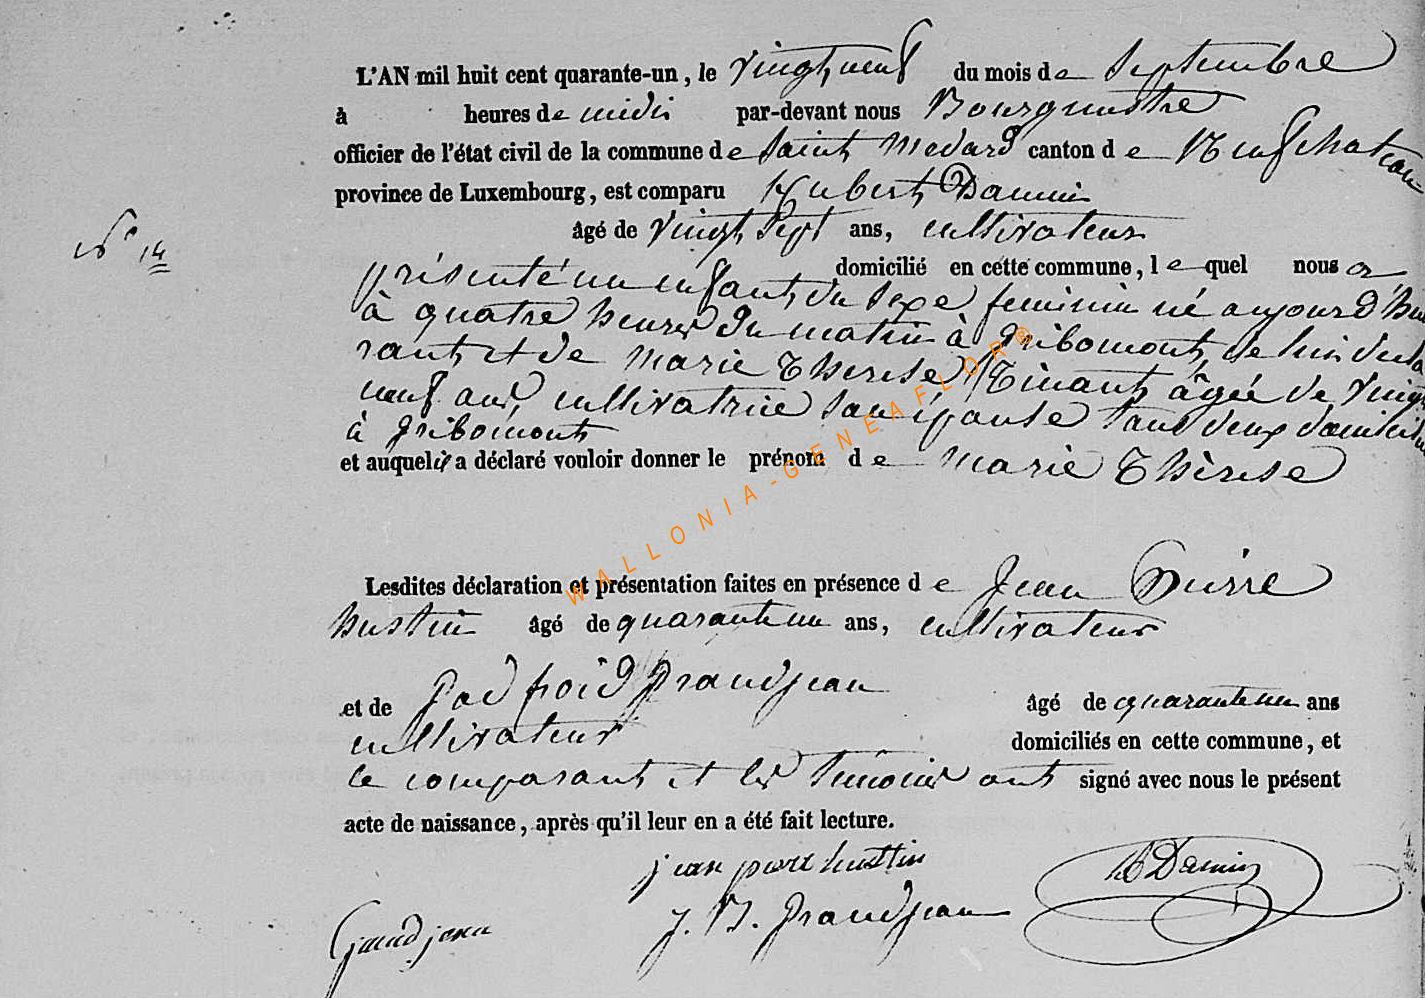 L'AN mil huit cent quarante-un, le vingt neuf du mois de Septembre
à heures de midi par-devant nous Bourguestre
officier de l'état civil de la commune de Saint Medard canton de Neufchateau
province de Luxembourg, est comparu Hubert Damin
No 14
âgé de vingt Sept ans, cultivateur
domicilié en cette commune, lequel nous a
présenté un enfant du Sexe feminin né aujourd'hui
à quatre heures du matin à Gribomont, de lui
et de Marie Therese Tinant âgée de vingt
neuf ans, cultivatrice tous deux
à Gribomont
et auquel il a déclaré vouloir donner le prénom de Marie Thèrese
Lesdites déclaration et présentation faites en présence de Jean Pierre
hustin âgé de quarante un ans, cultivateur
et de Godfroid Grandjean âgé de quarante un ans
cultivateur domiciliés en cette commune, et
le comparant et les témoins ont signé avec nous le présent
acte de naissance, après qu'il leur en a été fait lecture.
jean pierre hustin
H Damin
J. B. Grandjean
Grandjean
WALLONIA-GENEAFLOR®